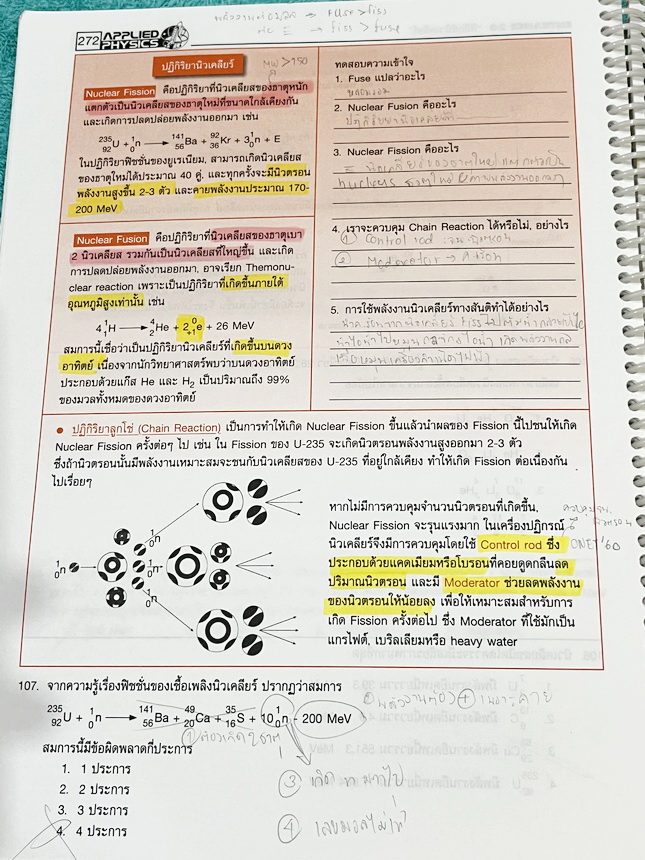 พลังงานต่อมวล → Fuse > fiss
ต่อ E → fiss > fuse
272 APPLIED PHYSICS
ปฏิกิริยานิวเคลียร์
MW > 150
Nuclear Fission คือปฏิกิริยาที่นิวเคลียสของธาตุหนัก
แตกตัวเป็นนิวเคลียสของธาตุใหม่ที่ขนาดใกล้เคียงกัน
และเกิดการปลดปล่อยพลังงานออกมา เช่น
²³⁵₉₂U + ¹₀n → ¹⁴¹₅₆Ba + ⁹²₃₆Kr + 3¹₀n + E
ในปฏิกิริยาฟิชชันของยูเรเนียม, สามารถเกิดนิวเคลียส
ของธาตุใหม่ได้ประมาณ 40 คู่, และทุกครั้งจะมีนิวตรอน
พลังงานสูงขึ้น 2-3 ตัว และคายพลังงานประมาณ 170-
200 MeV
Nuclear Fusion คือปฏิกิริยาที่นิวเคลียสของธาตุเบา
2 นิวเคลียส รวมกันเป็นนิวเคลียสที่ใหญ่ขึ้น และเกิด
การปลดปล่อยพลังงานออกมา, อาจเรียก Themonu-
clear reaction เพราะเป็นปฏิกิริยาที่เกิดขึ้นภายใต้
อุณหภูมิสูงเท่านั้น เช่น
4¹₁H → ⁴₂He + 2⁰₊₁e + 26 MeV
สมการนี้เชื่อว่าเป็นปฏิกิริยานิวเคลียร์ที่เกิดขึ้นบนดวง
อาทิตย์ เนื่องจากนักวิทยาศาสตร์พบว่าบนดวงอาทิตย์
ประกอบด้วยแก๊ส He และ H₂ เป็นปริมาณถึง 99%
ของมวลทั้งหมดของดวงอาทิตย์
ทดสอบความเข้าใจ
1. Fuse แปลว่าอะไร
หลอมรวม
2. Nuclear Fusion คืออะไร
3. Nuclear Fission คืออะไร
nucleus
4. เราจะควบคุม Chain Reaction ได้หรือไม่, อย่างไร
① Control rod :
② Moderator →
5. การใช้พลังงานนิวเคลียร์ทางสันติทำได้อย่างไร
• ปฏิกิริยาลูกโซ่ (Chain Reaction) เป็นการทำให้เกิด Nuclear Fission ขึ้นแล้วนำผลของ Fission นี้ไปชนให้เกิด
Nuclear Fission ครั้งต่อๆ ไป เช่น ใน Fission ของ U-235 จะเกิดนิวตรอนพลังงานสูงออกมา 2-3 ตัว
ซึ่งถ้านิวตรอนนั้นมีพลังงานเหมาะสมจะชนกับนิวเคลียสของ U-235 ที่อยู่ใกล้เคียง ทำให้เกิด Fission ต่อเนื่องกัน
ไปเรื่อยๆ
¹₀n
¹₀n
¹₀n
¹₀n
หากไม่มีการควบคุมจำนวนนิวตรอนที่เกิดขึ้น,
Nuclear Fission จะรุนแรงมาก ในเครื่องปฏิกรณ์
นิวเคลียร์จึงมีการควบคุมโดยใช้ Control rod ซึ่ง
ประกอบด้วยแคดเมียมหรือโบรอนที่คอยดูดกลืนลด
ปริมาณนิวตรอน และมี Moderator ช่วยลดพลังงาน
ของนิวตรอนให้น้อยลง เพื่อให้เหมาะสมสำหรับการ
เกิด Fission ครั้งต่อไป ซึ่ง Moderator ที่ใช้มักเป็น
แกรไฟต์, เบริลเลียมหรือ heavy water
ONET'60
107. จากความรู้เรื่องฟิชชันของเชื้อเพลิงนิวเคลียร์ ปรากฏว่าสมการ
²³⁵₉₂U + ¹₀n → ¹⁴¹₅₆Ba + ⁴⁹₂₀Ca + ³⁵₁₆S + 10¹₀n - 200 MeV
สมการนี้มีข้อผิดพลาดกี่ประการ
1. 1 ประการ
2. 2 ประการ
3. 3 ประการ
4. 4 ประการ
③ เกิด n มากไป
④ เลขมวลไม่เท่า